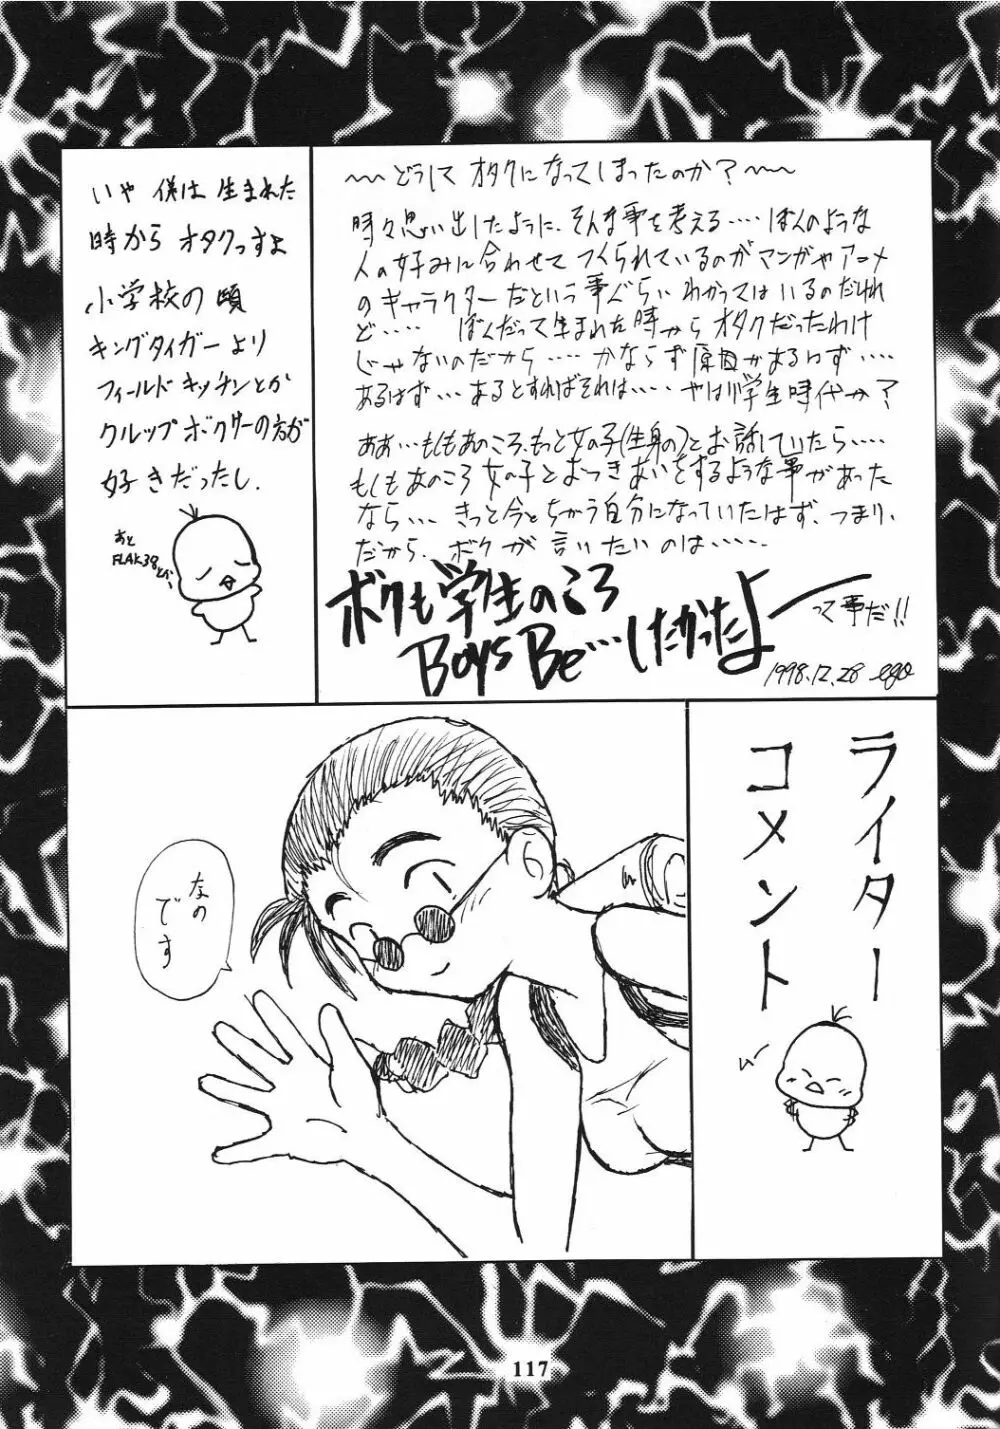 〜〜どうして オタクになってしまったのか？〜〜
時々思い出したように、そんな事を考える‥‥ ぼくのような
人の好みに合わせて つくられているのがマンガやアニメ
のキャラクターだという事ぐらい わかってはいるのだけれ
ど‥‥‥ ぼくだって生まれた時から オタクだったわけ
じゃないのだから‥‥ かならず原因があるはず‥‥
あるはず‥‥あるとすればそれは‥‥ やはり学生時代か？
ああ‥‥もしもあのころ、もっと女の子(生身の)とお話していたら‥‥
もしもあのころ 女の子と おつきあいをするような事があった
なら‥‥ きっと今とちがう自分になっていたはず、つまり、
だから、ボクが 言いたい のは‥‥‥
ボクも学生のころ
Boys Be…したかったよー
って事だ!!
1998.12.28 ego
いや 僕は 生まれた
時から オタクっすよ
小学校の頃
キングタイガーより
フィールドキッチンとか
クルップボクサーの方が
好きだったし.
あと
FLAK38とか、
ライター
コメント
なの
です
117